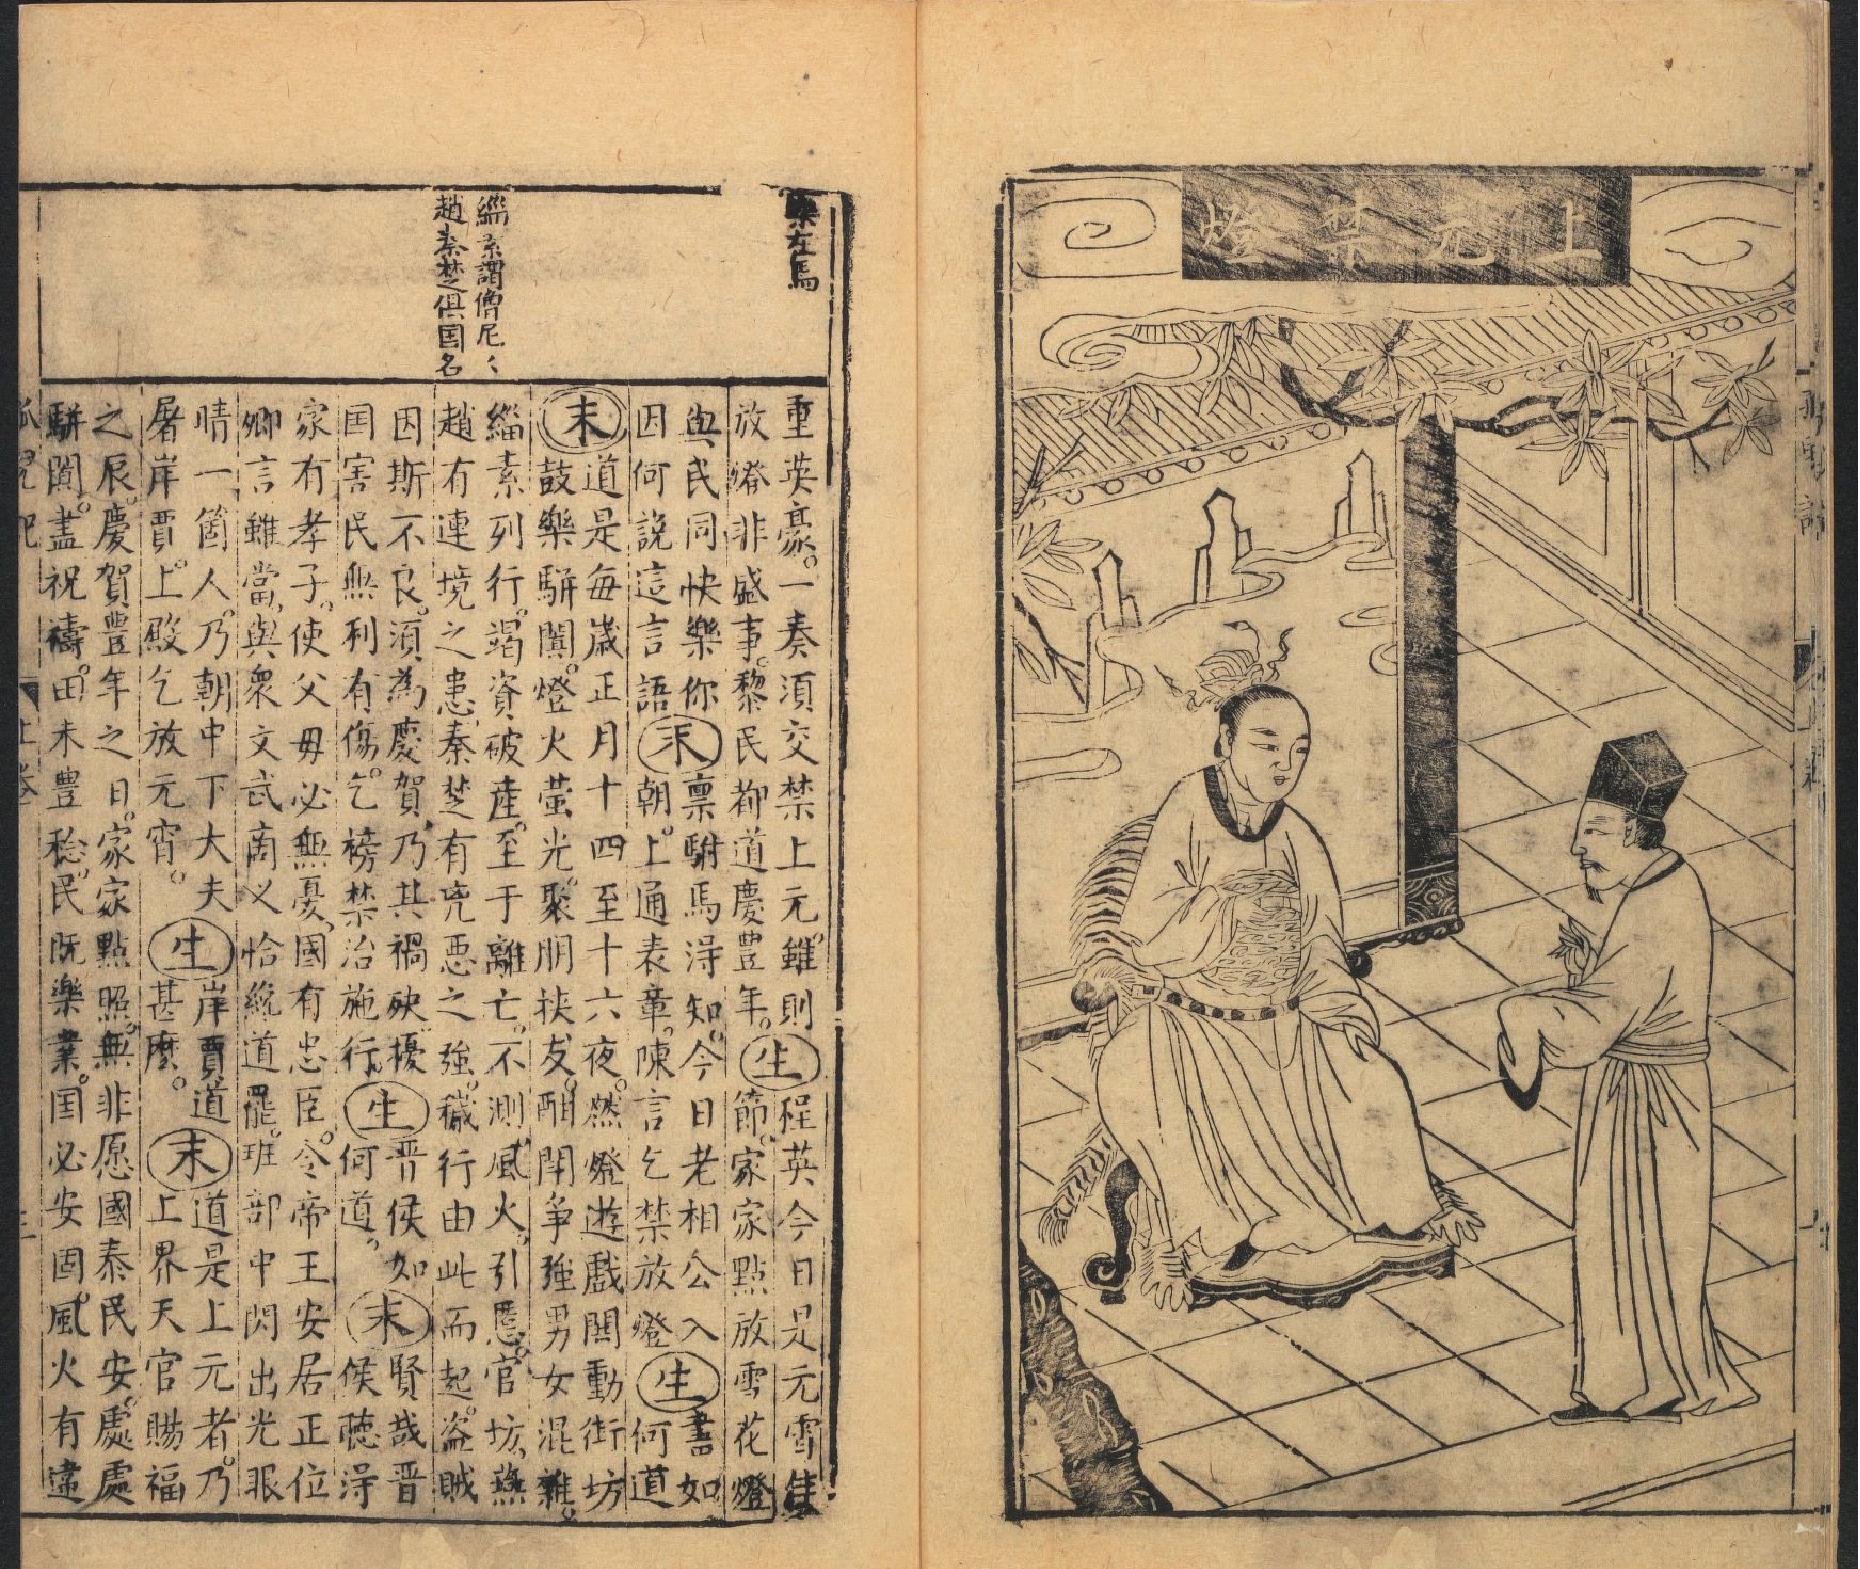 上元禁燈
左馬
緇素謂僧尼〻
趙秦楚俱国名
重英豪。一奏須交禁上元。雖則㊀生程英今日是元宵佳
放燈非盛事。黎民都道慶豊年。節。家家點放雪花燈
與民同快樂你末禀駙馬淂知。今日老相公入
因何說這言語朝。上通表章。陳言乞禁放燈生書如何道
末道是每歲正月十四至十六夜。燃燈遊戲閙動街坊
鼓樂駢闐。燈火螢光。聚朋挾友。酣閙爭強男女混雜。
緇素列行。竭資破產。至于離亡。不測風火。引惹官坊。蕪
趙有連境之患秦楚有兇惡之強。穢行由此而起。盗賊
因斯不良。須為慶賀。乃其禍砍擾生晋侯如末賢哉晋
国害民無利有傷。乞榜禁治施行。何道。侯聽淂
家有孝子。使父母必無憂。國有忠臣。令帝王安居正位
卿言雖當。與衆文武商议恰纔道罷。班部中閃出光眼
晴一箇人。乃朝中下大夫生岸賈道末道是上元者。乃
屠岸賈。上殿乞放元宵。甚麽。上界天官賜福
之辰。慶賀豊年之日。家家點照。無非愿國泰民安。處處
駢闐。盡祝禱。田禾豊稔。民既樂業。国必安固。風火有違
孤兒記 上卷